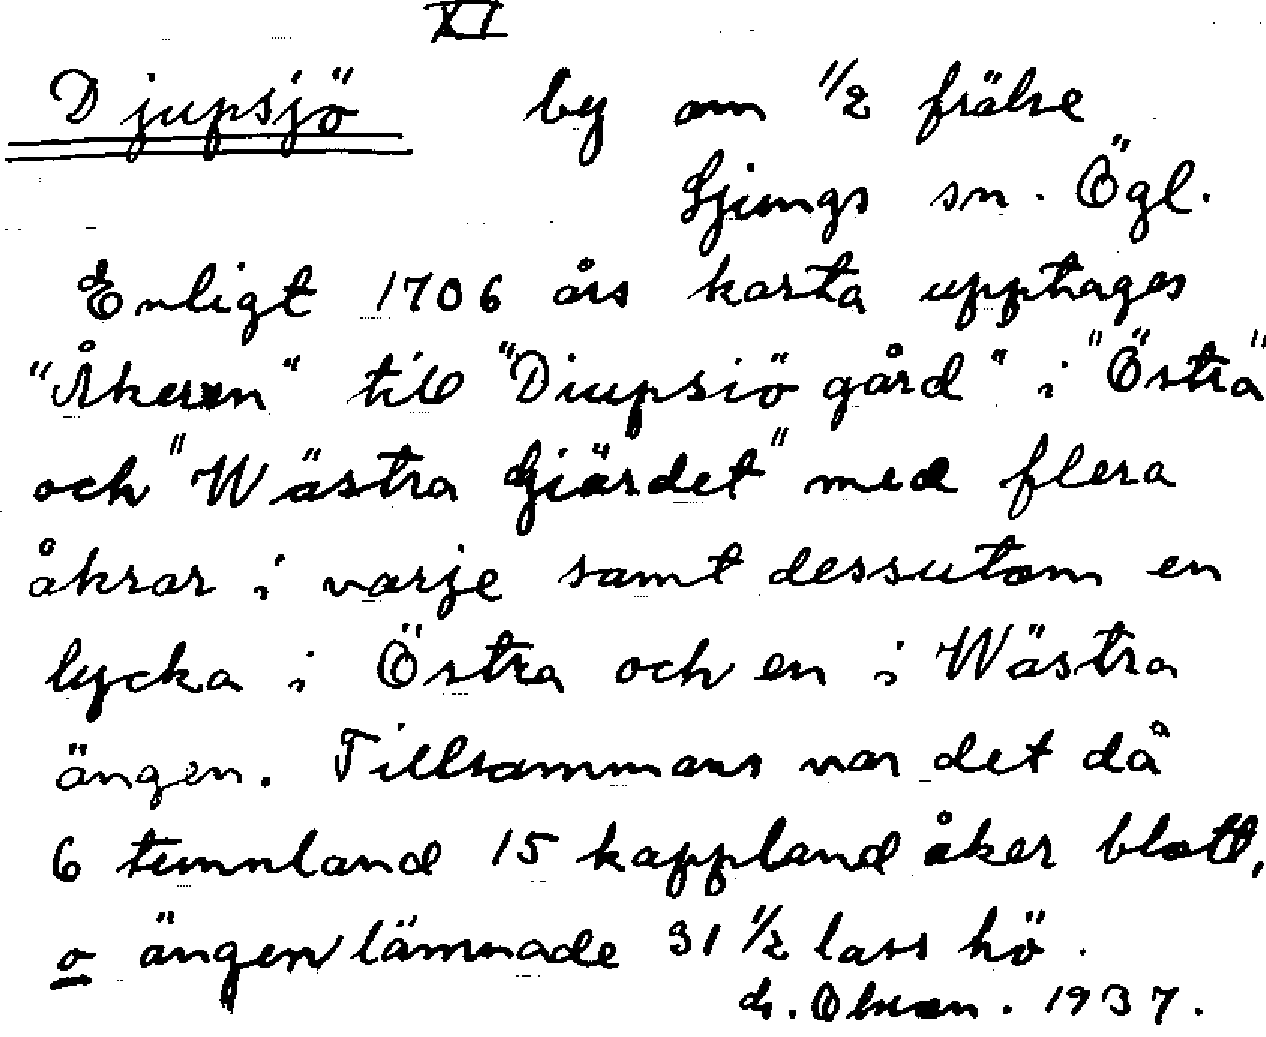 XI
Djupsjö by om 1/2 frälse
Ljungs sn. Ögl.
Enligt 1706 års karta upptages
"Åkeren" til "Diupsiö gård" i "Östra"
och "Wästra Giärdet" med flera
åkrar i varje samt dessutom en
lycka i Östra och en i Wästra
ängen. Tillsammans var det då
6 tunnland 15 kappland åker blott,
o ängen lämnade 31 1/2 lass hö.
Olsson. 1937.